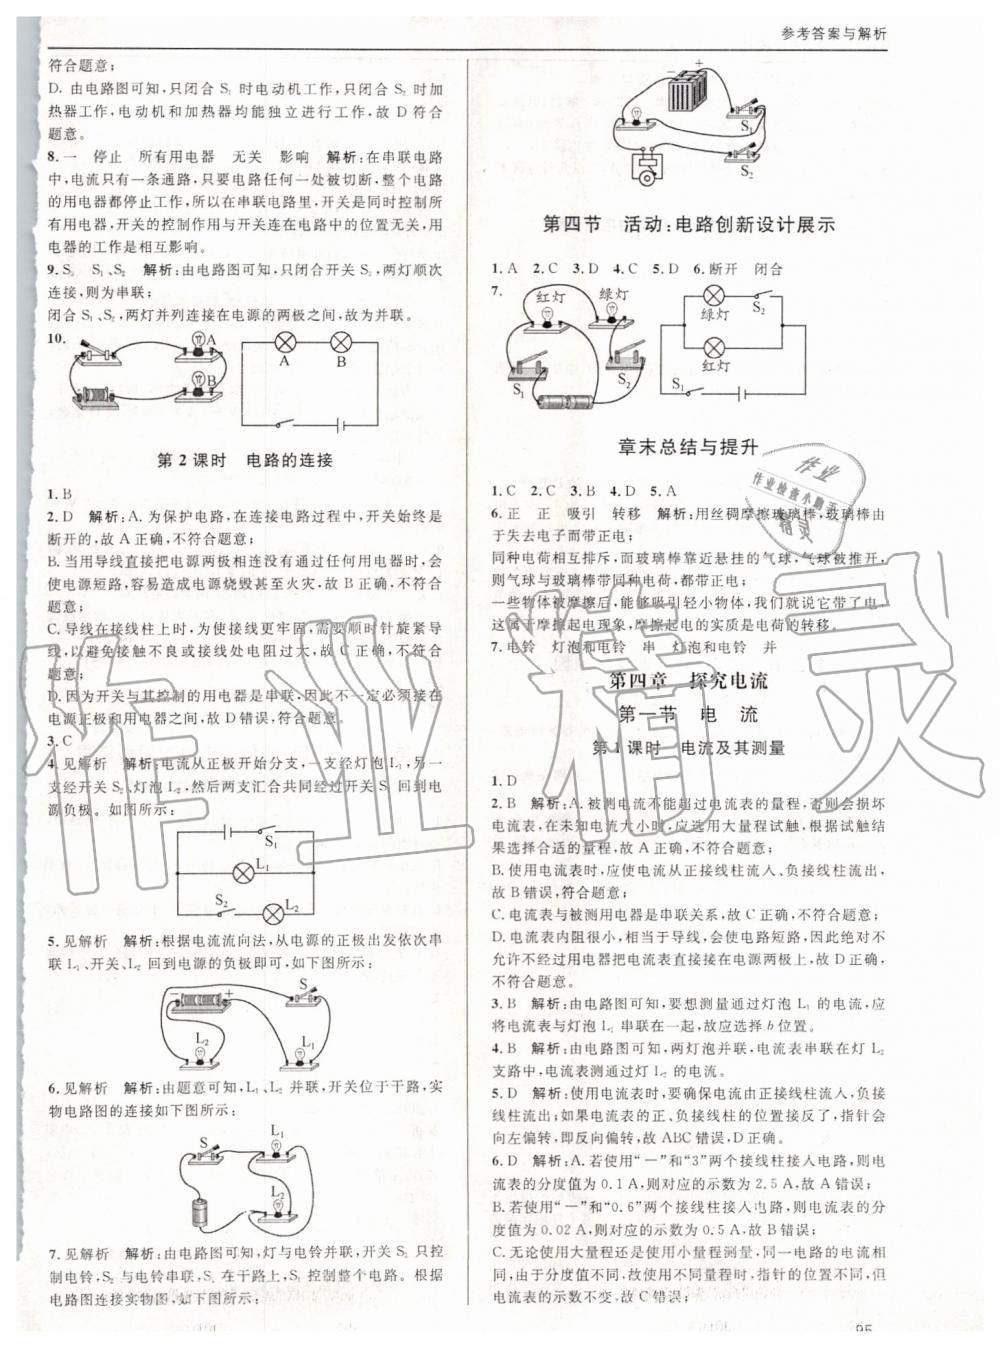 参考答案与解析
符合题意;
D. 由电路图可知,只闭合 S₁ 时电动机工作,只闭合 S₂ 时加
热器工作,电动机和加热器均能独立进行工作,故 D 符合
题意。
8. 一　停止　所有用电器　无关　影响　解析:在串联电路
中,电流只有一条通路,只要电路任何一处被切断,整个电路
的用电器都停止工作,所以在串联电路里,开关是同时控制所
有用电器,开关的控制作用与开关连在电路中的位置无关,用
电器的工作是相互影响。
9. S₃　S₁、S₂　解析:由电路图可知,只闭合开关 S₃,两灯顺次
连接,则为串联;
闭合 S₁、S₂,两灯并列连接在电源的两极之间,故为并联。
10.
A
B
A　B
第 2 课时　电路的连接
1. B
2. D　解析:A. 为保护电路,在连接电路过程中,开关始终是
断开的,故 A 正确,不符合题意;
B. 当用导线直接把电源两极相连没有通过任何用电器时,会
使电源短路,容易造成电源烧毁甚至火灾,故 B 正确,不符合
题意;
C. 导线在接线柱上时,为使接线更牢固,需要顺时针旋紧导
线,以避免接触不良或接线处电阻过大,故 C 正确,不符合
题意;
D. 因为开关与其控制的用电器是串联,因此不一定必须接在
电源正极和用电器之间,故 D 错误,符合题意。
3. C
4. 见解析　解析:电流从正极开始分支,一支经灯泡 L₁,另一
支经开关 S₂、灯泡 L₂,然后两支汇合共同经过开关 S₁ 回到电
源负极。如图所示:
S₁
L₁
S₂
L₂
5. 见解析　解析:根据电流流向法,从电源的正极出发依次串
联 L₁、开关、L₂ 回到电源的负极即可,如下图所示:
－　+　S
L₂　L₁
6. 见解析　解析:由题意可知,L₁、L₂ 并联,开关位于干路,实
物电路图的连接如下图所示:
S　L₁
L₂
7. 见解析　解析:由电路图可知,灯与电铃并联,开关 S₂ 只控
制电铃,S₂ 与电铃串联,S₁ 在干路上,S₁ 控制整个电路。根据
电路图连接实物图,如下图所示:
－　+
S₁
S₂
第四节　活动:电路创新设计展示
1. A　2. C　3. D　4. C　5. D　6. 断开　闭合
7.
红灯　绿灯
S₁　S₂
绿灯　S₂
红灯
S₁
章末总结与提升
1. C　2. C　3. B　4. D　5. A
6. 正　正　吸引　转移　解析:用丝绸摩擦玻璃棒,玻璃棒由
于失去电子而带正电;
同种电荷相互排斥,而玻璃棒靠近悬挂的气球,气球被推开,
则气球与玻璃棒带同种电荷,都带正电;
一些物体被摩擦后,能够吸引轻小物体,我们就说它带了电,
这属于摩擦起电现象,摩擦起电的实质是电荷的转移。
7. 电铃　灯泡和电铃　串　灯泡和电铃　并
第四章　探究电流
第一节　电　流
第 1 课时　电流及其测量
1. D
2. B　解析:A. 被测电流不能超过电流表的量程,否则会损坏
电流表,在未知电流大小时,应选用大量程试触,根据试触结
果选择合适的量程,故 A 正确,不符合题意;
B. 使用电流表时,应使电流从正接线柱流入、负接线柱流出,
故 B 错误,符合题意;
C. 电流表与被测用电器是串联关系,故 C 正确,不符合题意;
D. 电流表内阻很小,相当于导线,会使电路短路,因此绝对不
允许不经过用电器把电流表直接接在电源两极上,故 D 正确,
不符合题意。
3. B　解析:由电路图可知,要想测量通过灯泡 L₁ 的电流,应
将电流表与灯泡 L₁ 串联在一起,故应选择 b 位置。
4. B　解析:由电路图可知,两灯泡并联,电流表串联在灯 L₂
支路中,测通过灯 L₂ 的电流。
5. D　解析:使用电流表时,要确保电流由正接线柱流入,负接
线柱流出;如果电流表的正、负接线柱的位置接反了,指针会
向左偏转,即反向偏转,故 ABC 错误,D 正确。
6. D　解析:A. 若使用“－”和“3”两个接线柱接入电路,则电
流表的分度值为 0.1 A,则对应的示数为 2.5 A,故 A 错误;
B. 若使用“－”和“0.6”两个接线柱接入电路,则电流表的分
度值为 0.02 A,则对应的示数为 0.5 A,故 B 错误;
C. 无论使用大量程还是使用小量程测量,同一电路的电流不
变,由于分度值不同,故使用两个量程时,指针的位置不同,但
电流表的示数不变,故 C 错误;
95
作业
作业检查小助手
精灵
作业精灵